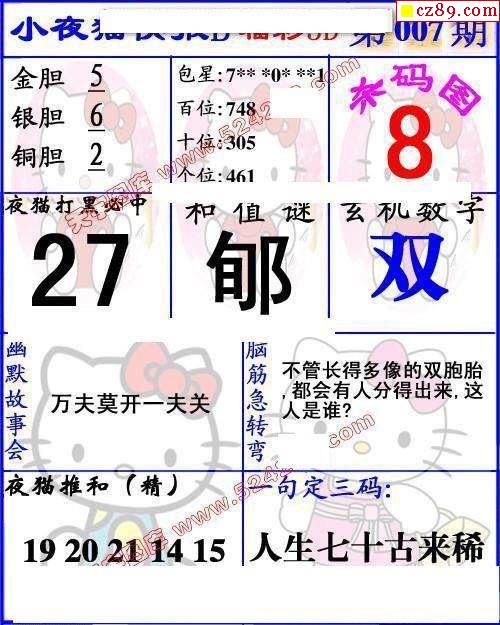 cz89.com
小夜猫快报D 福彩3D 第007期
金胆 5
银胆 6
铜胆 2
包星:7** *0* **1
百位:748
十位:305
个位:461
杀码图
8
夜猫打黑必中
27
和值谜
郇
玄机数字
双
幽默故事会
万夫莫开一夫关
脑筋急转弯
不管长得多像的双胞胎
,都会有人分得出来,这
人是谁?
夜猫推和(精)
19 20 21 14 15
一句定三码:
人生七十古来稀